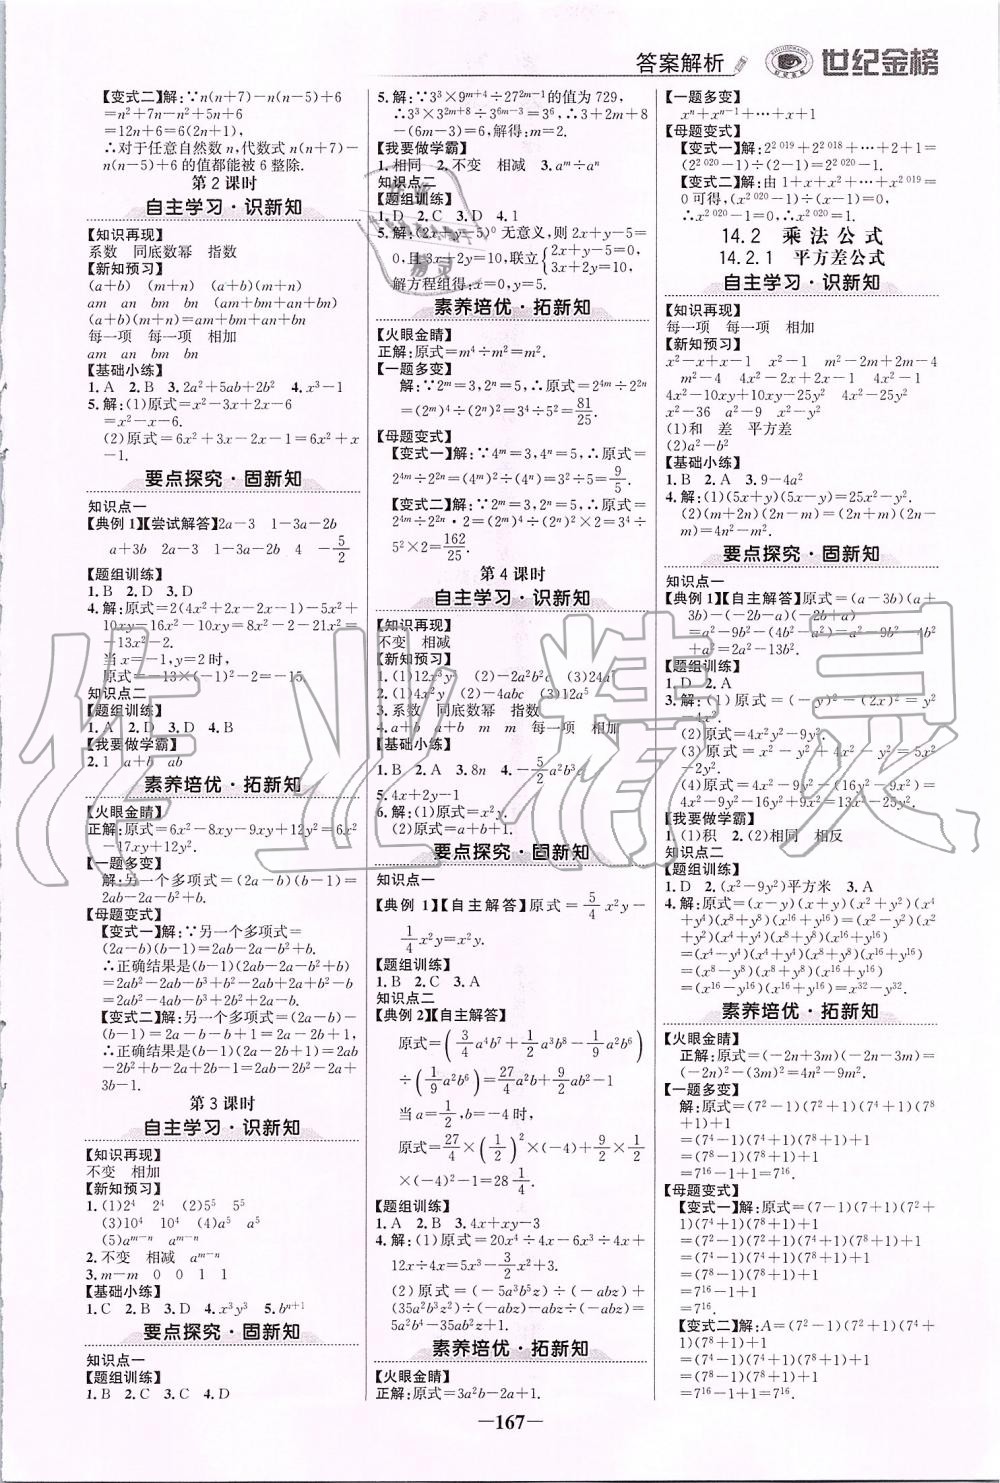 答案解析
世纪金榜
【变式二】解:∵n(n+7)-n(n-5)+6
=n²+7n-n²+5n+6
=12n+6=6(2n+1),
∴对于任意自然数n,代数式n(n+7)-
n(n-5)+6的值都能被6整除.
第2课时
自主学习·识新知
【知识再现】
系数 同底数幂 指数
【新知预习】
(a+b) (m+n) (a+b)(m+n)
am an bm bn (am+bm+an+bn)
(a+b)(m+n)=am+bm+an+bn
每一项 每一项 相加
am an bm bn
【基础小练】
1.A 2.B 3.2a²+5ab+2b² 4.x³-1
5.解:(1)原式=x²-3x+2x-6
=x²-x-6.
(2)原式=6x²+3x-2x-1=6x²+x
-1.
要点探究·固新知
知识点一
【典例1】【尝试解答】2a-3 1-3a-2b
a+3b 2a-3 1-3a-2b 4 -5/2
【题组训练】
1.B 2.D 3.D
4.解:原式=2(4x²+2x-2x-1)-5x²+
10xy=16x²-10xy=8x²-2-21x²=
-13x²-2.
当x=-1,y=2时,
原式=-13×(-1)²-2=-15.
知识点二
【题组训练】
1.A 2.D 3.D 4.B
【我要做学霸】
2.1 a+b ab
素养培优·拓新知
【火眼金睛】
正解:原式=6x²-8xy-9xy+12y²=6x²
-17xy+12y².
【一题多变】
解:另一个多项式=(2a-b)(b-1)=
2ab-2a-b²+b.
【母题变式】
【变式一】解:∵另一个多项式=
(2a-b)(b-1)=2ab-2a-b²+b.
∴正确结果是(b-1)(2ab-2a-b²+b)
=2ab²-2ab-b³+b²-2ab+2a+b²-b=
2ab²-4ab-b³+2b²+2a-b.
【变式二】解:另一个多项式=(2a-b)-
(b-1)=2a-b-b+1=2a-2b+1,
正确结果是(b-1)(2a-2b+1)=2ab
-2b²+b-2a+2b-1=2ab-2b²-2a+
3b-1.
第3课时
自主学习·识新知
【知识再现】
不变 相加
【新知预习】
1.(1)2⁴ 2⁴ (2)5⁵ 5⁵
(3)10⁴ 10⁴ (4)a⁵ a⁵
(5)aᵐ⁻ⁿ aᵐ⁻ⁿ
2.不变 相减 aᵐ⁻ⁿ
3.m-m 0 0 1 1
【基础小练】
1.C 2.B 3.D 4.x³y³ 5.bⁿ⁺¹
要点探究·固新知
知识点一
【题组训练】
1.B 2.C 3.C 4.D
5.解:∵3³×9ᵐ⁺⁴÷27²ᵐ⁻¹的值为729,
∴3³×3²ᵐ⁺⁸÷3⁶ᵐ⁻³=3⁶,∴3+2m+8
-(6m-3)=6,解得:m=2.
【我要做学霸】
1.相同 2.不变 相减 3.aᵐ÷aⁿ
知识点二
【题组训练】
1.D 2.C 3.D 4.1
5.解:(2x+y-5)⁰无意义,则2x+y-5=
0,且3x+2y=10,联立{2x+y-5=0, 3x+2y=10,
解方程组得:x=0,y=5.
素养培优·拓新知
【火眼金睛】
正解:原式=m⁴÷m²=m².
【一题多变】
解:∵2ᵐ=3,2ⁿ=5,∴原式=2⁴ᵐ÷2²ⁿ
=(2ᵐ)⁴÷(2ⁿ)²=3⁴÷5²=81/25.
【母题变式】
【变式一】解:∵4ᵐ=3,4ⁿ=5,∴原式=
2⁴ᵐ÷2²ⁿ=4²ᵐ÷4ⁿ=(4ᵐ)²÷4ⁿ=3²÷5=9/5.
【变式二】解:∵2ᵐ=3,2ⁿ=5,∴原式=
2⁴ᵐ÷2²ⁿ·2=(2ᵐ)⁴÷(2ⁿ)²×2=3⁴÷
5²×2=162/25.
第4课时
自主学习·识新知
【知识再现】
不变 相减
【新知预习】
1.(1)12x³y³ (2)-2a²b³c (3)24a⁷
2.(1)4x²y (2)-4abc (3)12a⁵
3.系数 同底数幂 指数
4.a+b a+b m m 每一项 相加
【基础小练】
1.B 2.A 3.8n 4.-5/2a²b³c
5.4x+2y-1
6.解:(1)原式=x²y.
(2)原式=a+b+1.
要点探究·固新知
知识点一
【典例1】【自主解答】原式=5/4x²y-
1/4x²y=x²y.
【题组训练】
1.B 2.C 3.A
知识点二
【典例2】【自主解答】
原式=(3/4a⁴b⁷+1/2a³b⁸-1/9a²b⁶)
÷(1/9a²b⁶)=27/4a²b+9/2ab²-1
当a=1/2,b=-4时,
原式=27/4×(1/2)²×(-4)+9/2×1/2
×(-4)²-1=28 1/4.
【题组训练】
1.A 2.B 3.4x+xy-3
4.解:(1)原式=20x⁴÷4x-6x³÷4x+
12x÷4x=5x³-3/2x²+3.
(2)原式=(-5a³b³z)÷(-abz)+
(35a²b³z²)÷(-abz)-abz÷(-abz)=
5a²b²-35ab²z+1.
素养培优·拓新知
【火眼金睛】
正解:原式=3a²b-2a+1.
【一题多变】
xⁿ+xⁿ⁻¹+…+x+1
【母题变式】
【变式一】解:2²⁰¹⁹+2²⁰¹⁸+…+2+1=
(2²⁰²⁰-1)÷(2-1)=2²⁰²⁰-1.
【变式二】解:由1+x+x²+…+x²⁰¹⁹=
0可得,(x²⁰²⁰-1)÷(x-1)=0,
∴x²⁰²⁰-1=0,∴x²⁰²⁰=1.
14.2 乘法公式
14.2.1 平方差公式
自主学习·识新知
【知识再现】
每一项 每一项 相加
【新知预习】
x²-x+x-1 x²-1 m²-2m+2m-4
m²-4 4x²-2x+2x-1 4x²-1
4x²-10xy+10xy-25y² 4x²-25y²
x²-36 a²-9 x²-y²
(1)和 差 平方差
(2)a²-b²
【基础小练】
1.B 2.A 3.9-4a²
4.解:(1)(5x+y)(5x-y)=25x²-y².
(2)(m+2n)(2n-m)=(2n+m)(2n-
m)=4n²-m².
要点探究·固新知
知识点一
【典例1】【自主解答】原式=(a-3b)(a+
3b)-(-2b-a)(-2b+a)
=a²-9b²-(4b²-a²)=a²-9b²-4b²
+a²=2a²-13b².
【题组训练】
1.D 2.A
3.解:(1)原式=(-y)²-(2x)²=y²
-4x².
(2)原式=4x²y²-9z².
(3)原式=x²-y²+4x²-y²=5x²
-2y².
(4)原式=4x²-9y²-(16y²-9x²)=
4x²-9y²-16y²+9x²=13x²-25y².
【我要做学霸】
1.(1)积 2.(2)相同 相反
知识点二
【题组训练】
1.D 2.(x²-9y²)平方米 3.A
4.解:原式=(x-y)(x+y)(x²+y²)(x⁴
+y⁴)(x⁸+y⁸)(x¹⁶+y¹⁶)=(x²-y²)(x²
+y²)(x⁴+y⁴)(x⁸+y⁸)(x¹⁶+y¹⁶)
=(x⁴-y⁴)(x⁴+y⁴)(x⁸+y⁸)(x¹⁶+y¹⁶)
=(x⁸-y⁸)(x⁸+y⁸)(x¹⁶+y¹⁶)
=(x¹⁶-y¹⁶)(x¹⁶+y¹⁶)=x³²-y³².
素养培优·拓新知
【火眼金睛】
正解:原式=(-2n+3m)(-2n-3m)=
(-2n)²-(3m)²=4n²-9m².
【一题多变】
解:原式=(7²-1)(7²+1)(7⁴+1)(7⁸
+1)+1
=(7⁴-1)(7⁴+1)(7⁸+1)+1
=(7⁸-1)(7⁸+1)+1
=7¹⁶-1+1=7¹⁶.
【母题变式】
【变式一】解:原式=(7-1)(7+1)(7²+
1)(7⁴+1)(7⁸+1)+1
=(7²-1)(7²+1)(7⁴+1)(7⁸+1)+1
=(7⁴-1)(7⁴+1)(7⁸+1)+1
=(7⁸-1)(7⁸+1)+1
=7¹⁶-1+1
=7¹⁶.
【变式二】解:A=(7²-1)(7²+1)(7⁴+
1)(7⁸+1)+1
=(7⁴-1)(7⁴+1)(7⁸+1)+1
=(7⁸-1)(7⁸+1)+1
=7¹⁶-1+1=7¹⁶.
—167—
作业精灵